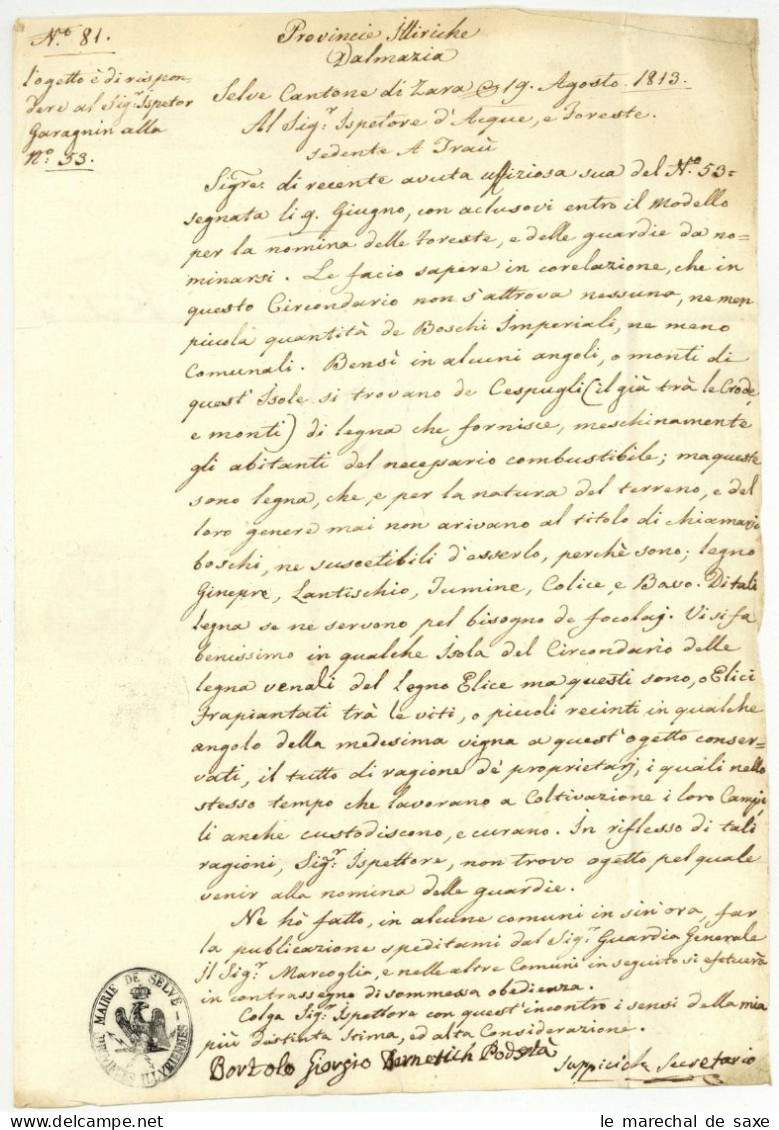 N.º 81.
l'ogetto è di rispon-
dere al Sig.r Ispetor
Garagnin alla
N.º 53.
Provincie Illiriche
Dalmazia
Selve Cantone di Zara 19. Agosto 1813.
Al Sig.r Ispetore d'Acque, e Foreste.
sedente A Traù
Sigre. di recente avuta uffiziosa sua del N.º 53=
segnata li 9. Giugno, con aclusovi entro il Modello
per la nomina delle Foreste, e delle guardie da no-
minarsi. Le facio sapere in corelazione, che in
questo Circondario non s'attrova nessuna, ne men
picola quantità de Boschi Imperiali, ne meno
Comunali. Bensì in alcuni angoli, o monti di
quest' Isole si trovano de Cespugli (il già trà le Crode,
e monti) di legna che fornisce, meschinamente
gli abitanti del necessario combustibile; ma queste
sono legna, che, e per la natura del terreno, e del
loro genere mai non arivano al titolo di chiamarsi
boschi, ne suscetibili d'esserlo, perchè sono; legno
Ginepre, Lantischio, Fumine, Colice, e Bavo. Di tali
legna se ne servono pel bisogno de focolaj. Vi si fa
benissimo in qualche Isola del Circondario delle
legna venali del Legno Elice ma questi sono, o Elici
Trapiantati trà le viti, o piccoli recinti in qualche
angolo della medesima vigna a quest' ogetto conser=
vati, il tutto di ragione dè proprietarj, i quali nello
stesso tempo che lavorano a Coltivazione i loro Campi,
li anche custodiscono, e curano. In riflesso di tali
ragioni, Sig.r Ispettore, non trovo ogetto pel quale
venir alla nomina delle guardie.
Ne hò fatto, in alcune comuni in sin' ora, far
la publicazione speditami dal Sig.r Guardia Generale
il Sig.r Marcoglio, e nelle altre Comuni in seguito si efetuerà
in contrassegno di sommessa obedienza.
Colga Sig.r Ispettore con quest' incontro i sensi della mia
più distinta stima, ed alta Considerazione.
Bortolo Giorgio Podstà
Suppicich Secretario
MAIRIE DE SELVE
PROVINCES ILLYRIENNES
le marechal de saxe